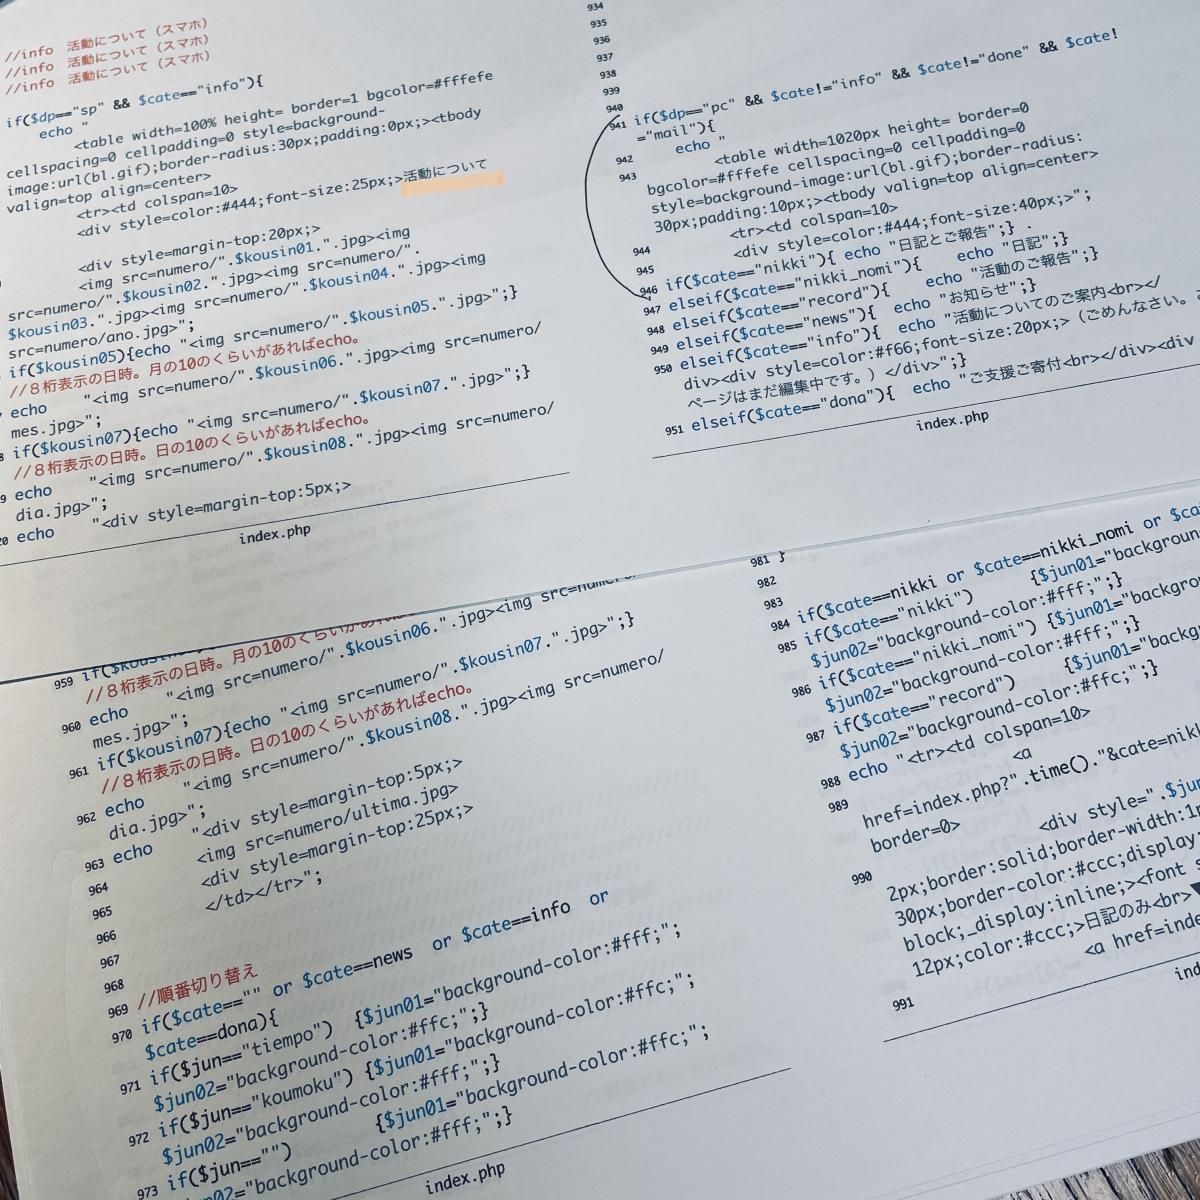 //info 活動について（スマホ）
//info 活動について（スマホ）
//info 活動について（スマホ）
if($dp=="sp" && $cate=="info"){
echo "
<table width=100% height= border=1 bgcolor=#fffefe
cellspacing=0 cellpadding=0 style=background-
image:url(bl.gif);border-radius:30px;padding:0px;><tbody
valign=top align=center>
<tr><td colspan=10>
<div style=color:#444;font-size:25px;>活動について
<div style=margin-top:20px;>
<img src=numero/".$kousin01.".jpg><img
src=numero/".$kousin02.".jpg><img src=numero/".
$kousin03.".jpg><img src=numero/".$kousin04.".jpg><img
src=numero/ano.jpg>";
if($kousin05){echo "<img src=numero/".$kousin05.".jpg>";}
//８桁表示の日時。月の10のくらいがあればecho。
echo "<img src=numero/".$kousin06.".jpg><img src=numero/
mes.jpg>";
if($kousin07){echo "<img src=numero/".$kousin07.".jpg>";}
//８桁表示の日時。日の10のくらいがあればecho。
echo "<img src=numero/".$kousin08.".jpg><img src=numero/
dia.jpg>";
echo "<div style=margin-top:5px;>
index.php
934
935
936
937
938
939
940
941 if($dp=="pc" && $cate!="info" && $cate!="done" && $cate!
="mail"){
942 echo "
943 <table width=1020px height= border=0
bgcolor=#fffefe cellspacing=0 cellpadding=0
style=background-image:url(bl.gif);border-radius:
30px;padding:10px;><tbody valign=top align=center>
944 <tr><td colspan=10>
945 <div style=color:#444;font-size:40px;>";
946 if($cate=="nikki"){ echo "日記とご報告";}
947 elseif($cate=="nikki_nomi"){ echo "日記";}
948 elseif($cate=="record"){ echo "活動のご報告";}
949 elseif($cate=="news"){ echo "お知らせ";}
950 elseif($cate=="info"){ echo "活動についてのご案内<br></
div><div style=color:#f66;font-size:20px;>（ごめんなさい。
ページはまだ編集中です。）</div>";}
951 elseif($cate=="dona"){ echo "ご支援ご寄付<br></div><div
index.php
959 if($kousin
//８桁表示の日時。月の10のくらいがあれ
960 echo "<img src=numero/".$kousin06.".jpg><img src=numero/
mes.jpg>";
961 if($kousin07){echo "<img src=numero/".$kousin07.".jpg>";}
//８桁表示の日時。日の10のくらいがあればecho。
962 echo "<img src=numero/".$kousin08.".jpg><img src=numero/
dia.jpg>";
963 echo "<div style=margin-top:5px;>
964 <img src=numero/ultima.jpg>
965 <div style=margin-top:25px;>
966 </td></tr>";
967
968
969 //順番切り替え
970 if($cate=="" or $cate==news or $cate==info or
$cate==dona){
971 if($jun=="tiempo") {$jun01="background-color:#fff;";
$jun02="background-color:#ffc;";}
972 if($jun=="koumoku") {$jun01="background-color:#ffc;";
$jun02="background-color:#fff;";}
973 if($jun=="") {$jun01="background-color:#ffc;";
$jun02="background-color:#fff;";}
index.php
981 }
982
983
984 if($cate==nikki or $cate==nikki_nomi or $ca
985 if($cate=="nikki") {$jun01="backgroun
$jun02="background-color:#fff;";}
986 if($cate=="nikki_nomi") {$jun01="backgro
$jun02="background-color:#fff;";}
987 if($cate=="record") {$jun01="backg
$jun02="background-color:#ffc;";}
988 echo "<tr><td colspan=10>
989 <a
href=index.php?".time()."&cate=nikk
border=0>
990 <div style=".$jun
2px;border:solid;border-width:1
30px;border-color:#ccc;display:
block;_display:inline;><font s
12px;color:#ccc;>日記のみ<br>
991 <a href=inde
ind